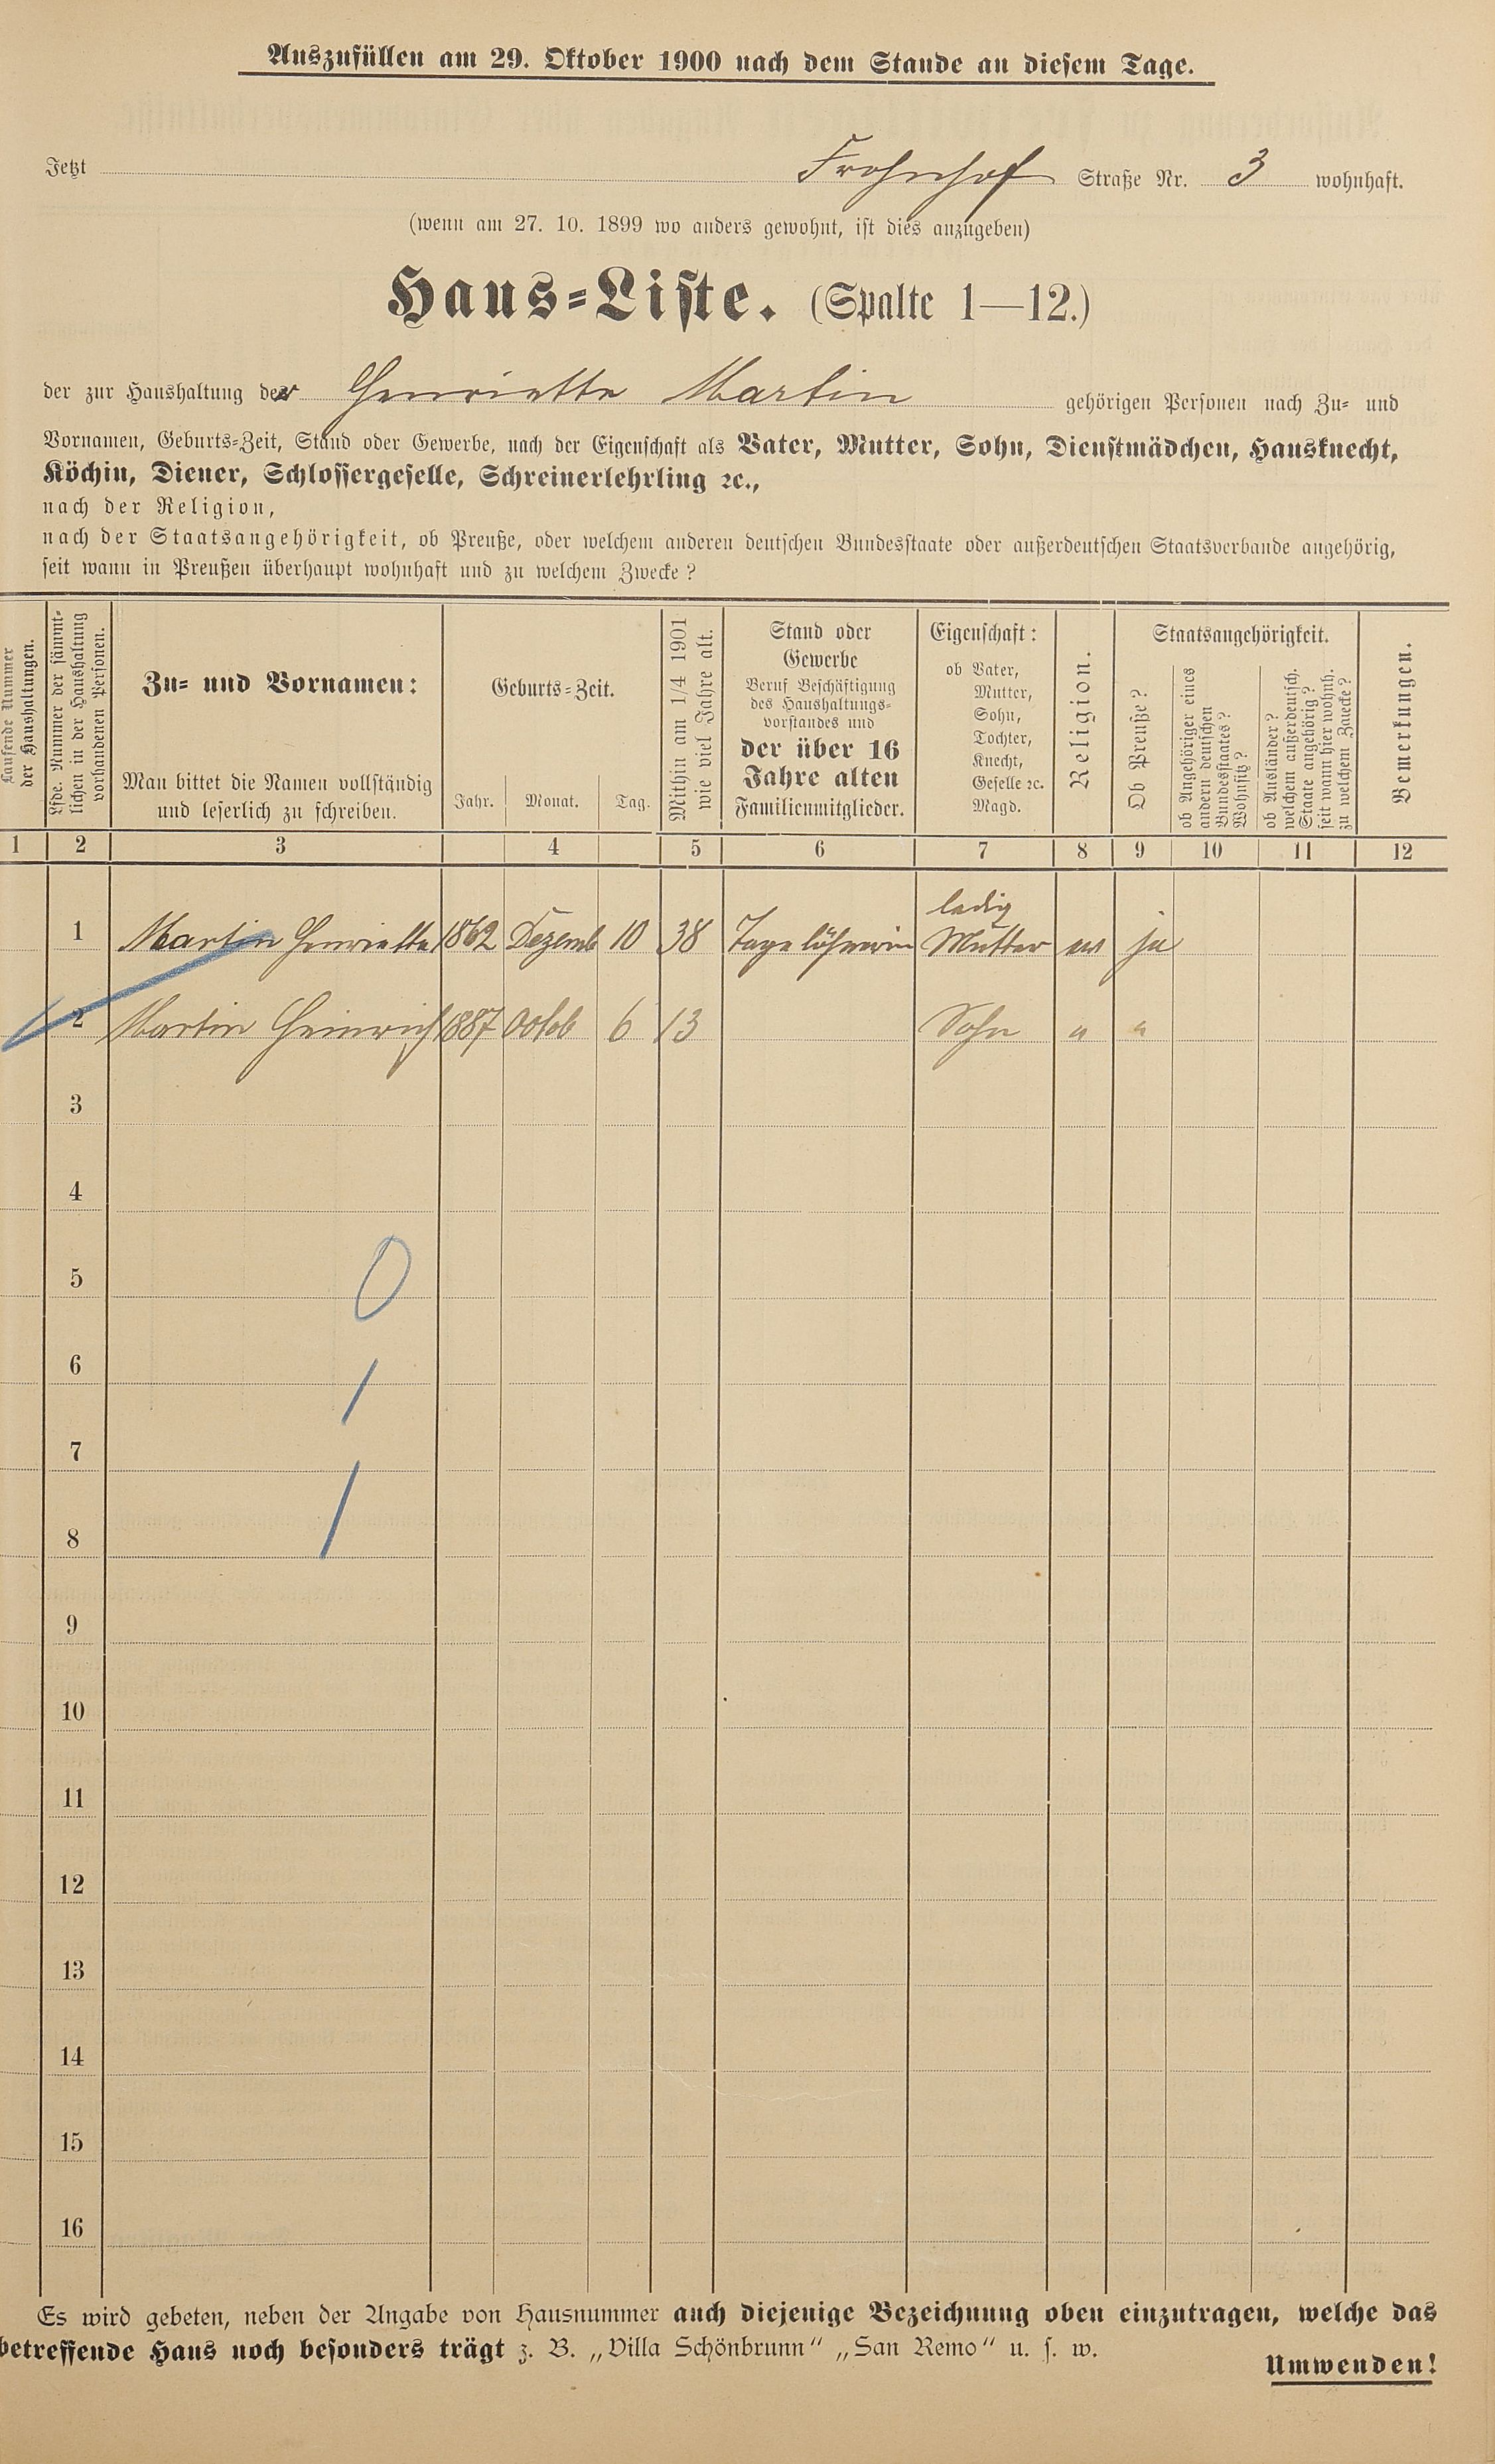 Auszufüllen am 29. Oktober 1900 nach dem Stande an diesem Tage.
Jetzt Frohnhof Straße Nr. 3 wohnhaft.
(wenn am 27. 10. 1899 wo anders gewohnt, ist dies anzugeben)
Haus-Liste. (Spalte 1—12.)
der zur Haushaltung der Henriette Martin gehörigen Personen nach Zu- und
Vornamen, Geburts-Zeit, Stand oder Gewerbe, nach der Eigenschaft als Vater, Mutter, Sohn, Dienstmädchen, Hausknecht,
Köchin, Diener, Schlossergeselle, Schreinerlehrling ꝛc.,
nach der Religion,
nach der Staatsangehörigkeit, ob Preuße, oder welchem anderen deutschen Bundesstaate oder außerdeutschen Staatsverbande angehörig,
seit wann in Preußen überhaupt wohnhaft und zu welchem Zwecke?
Laufende Nummer
der Haushaltungen.
Lfde. Nummer der sämmt-
lichen in der Haushaltung
vorhandenen Personen.
Zu- und Vornamen:
Man bittet die Namen vollständig
und leserlich zu schreiben.
Geburts-Zeit.
Jahr. Monat. Tag.
Mithin am 1/4 1901
wie viel Jahre alt.
Stand oder
Gewerbe
Beruf Beschäftigung
des Haushaltungs-
vorstandes und
der über 16
Jahre alten
Familienmitglieder.
Eigenschaft:
ob Vater,
Mutter,
Sohn,
Tochter,
Knecht,
Geselle ꝛc.
Magd.
Religion.
Staatsangehörigkeit.
Ob Preuße?
ob Angehöriger eines
andern deutschen
Bundesstaates?
Wohnsitz?
ob Ausländer?
welchem außerdeutsch.
Staate angehörig?
seit wann hier wohnh.
zu welchem Zwecke?
Bemerkungen.
1 2 3 4 5 6 7 8 9 10 11 12
ledig
1 Martin Henriette 1862 Dezemb 10 38 Tagelöhnerin Mutter ev ja
2 Martin Heinrich 1887 Octob 6 13 Sohn " "
3
4
5
0
6
/
7
/
8
9
10
11
12
13
14
15
16
Es wird gebeten, neben der Angabe von Hausnummer auch diejenige Bezeichnung oben einzutragen, welche das
betreffende Haus noch besonders trägt z. B. „Villa Schönbrunn" „San Remo" u. s. w.
Umwenden!